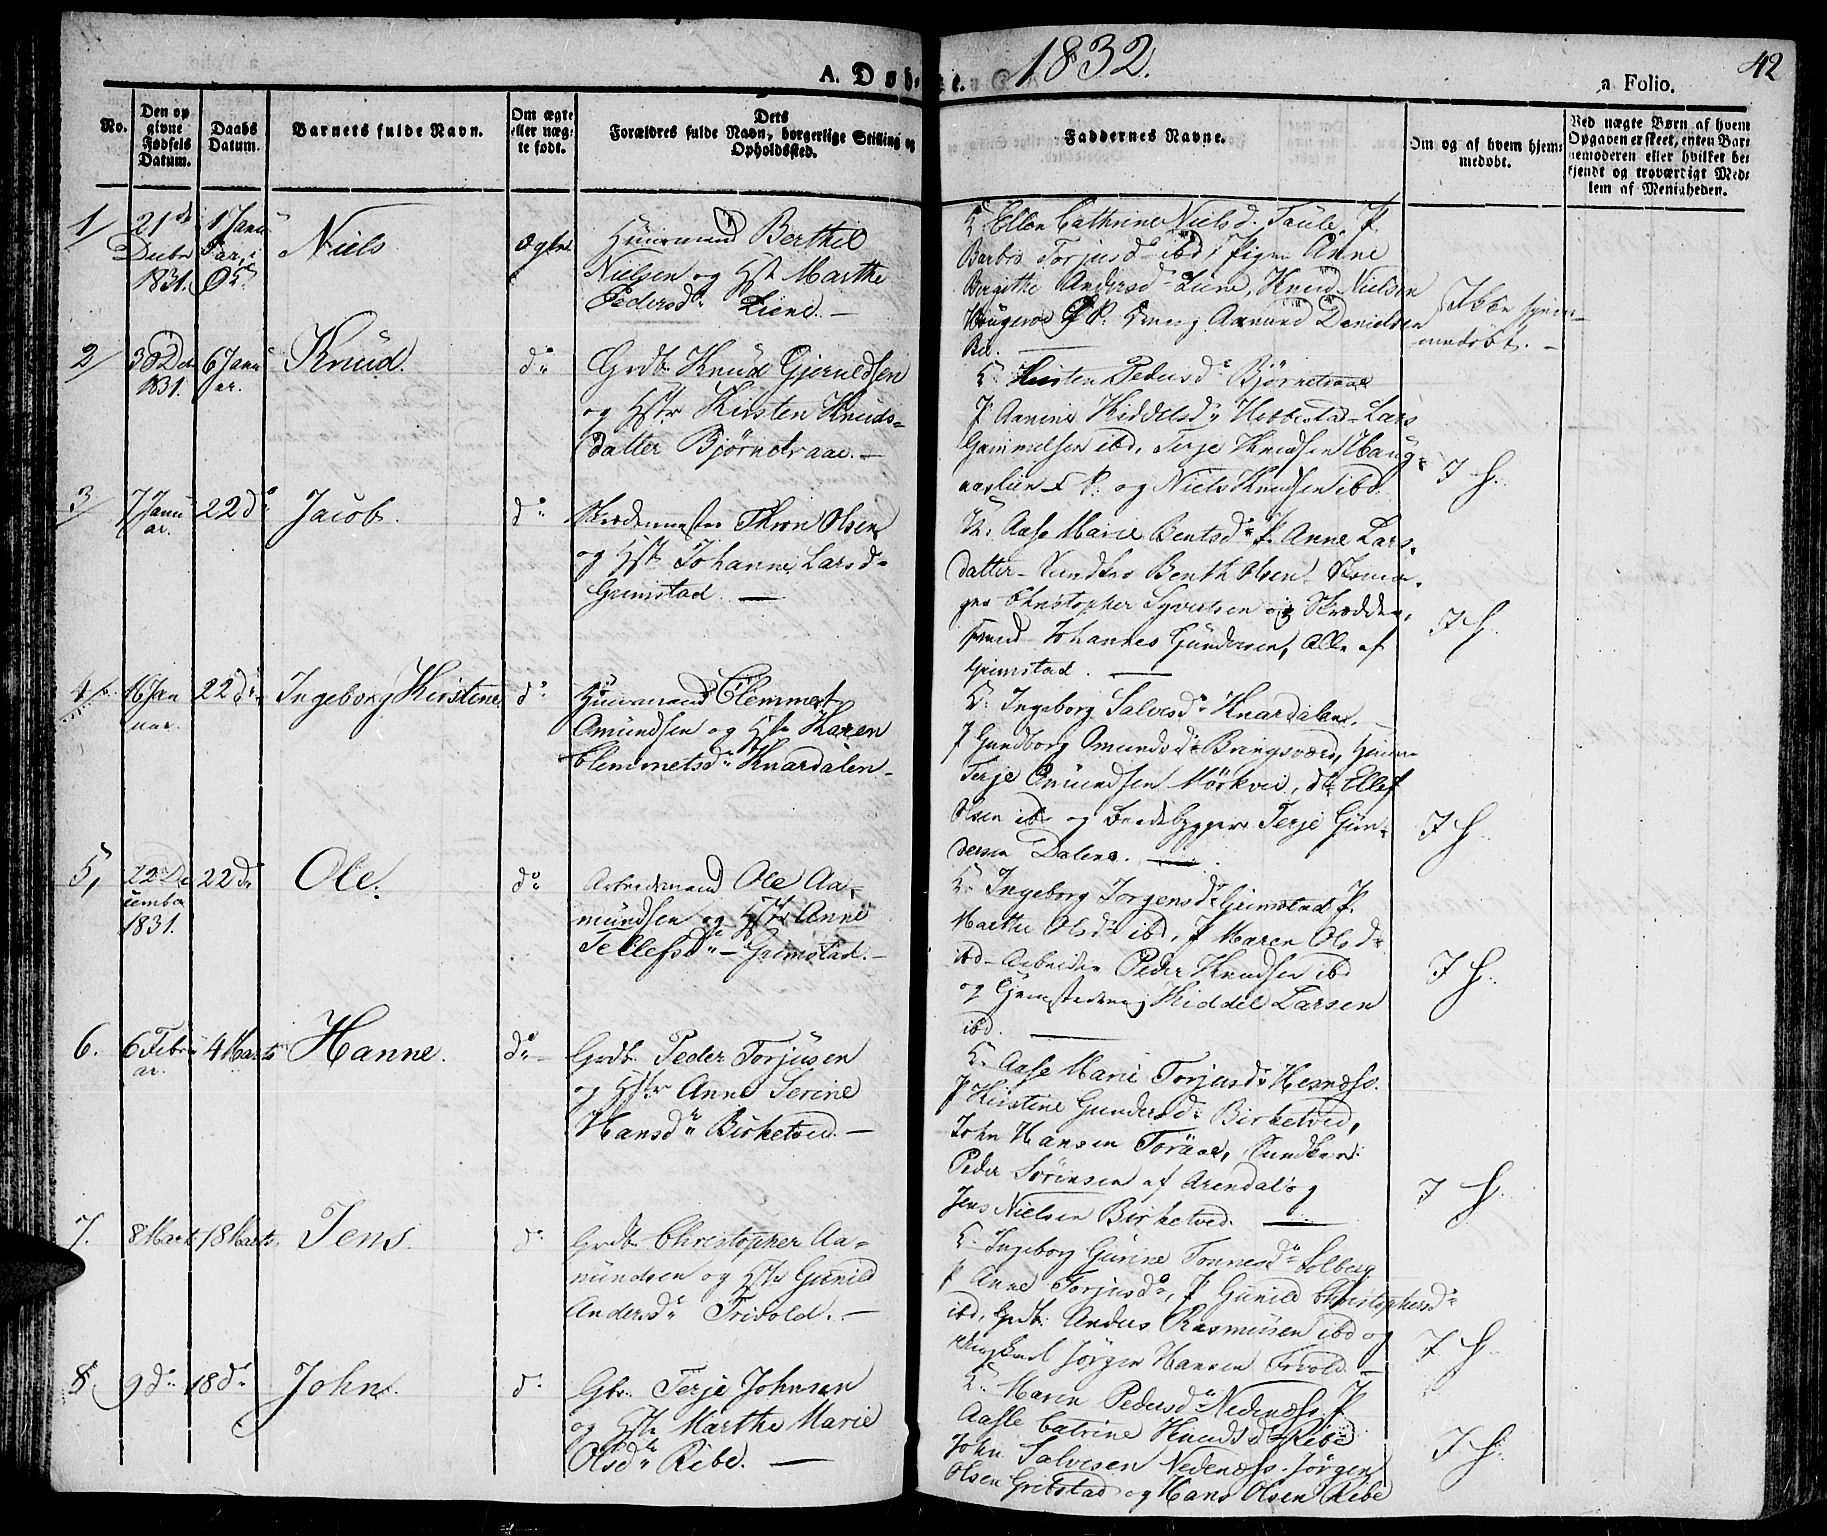 1832.
42
A. Døbte.
a Folio.
No.
Den op
givne
Fødsels
Datum.
Daabs
Datum.
Barnets fulde Navn.
Om ægte
eller uæg-
te født.
Dets
Forældres fulde Navn, borgerlige Stilling og
Opholdssted.
Faddernes Navne.
Om og af hvem hjem-
medøbt.
Ved uægte Børn af hvem
Opgaven er skeet, enten Bar-
nemoderen eller hvilket be-
kjendt og troværdigt Med-
lem af Menigheden.
1/
21de
Decbr
1831.
1 Janu
ar,
Niels
ægte
Huusmand Berthel
Nielsen og Hst Marthe
Pedersd. Liene. —
K. Ellen Cathrine Nielsd. P.
Barbro Torjusd. ibd, Pigen Anne
Birgithe Andersd. Liene, Knud Nielsen
Haugerøe Aanund Danielsen
Ikke hjem-
medöbt. —
2/
30 De
1831.
6 Janu
ar.
Knud.
do
Grdb. Knud Gjeruldsen
og Hstr Kirsten Knuds-
datter Bjørnetraae. —
K. Kirsten Pedersd. Bjørnetraae
P. Kiddelsd. Hobbestad Lars
Gammelsen ibd, Terje Knudsen Haug-
aaslien og Niels Knudsen ibd.
I H.
3/
7 Janu
ar.
22 do
Jacob.
do
Skrædermester Thron Olsen
og Hst Johanne Larsd.
Grimstad. —
K. Aase Marie Bentsd. P. Anne Lars-
datter Benth Olsen
Christopher Syvertsen og Skrædder-
svend Johannes Gundersen, Alle af
Grimstad. —
I H.
4/
16 Jan
uar.
22 do
Ingeborg Kirstine
do
Huusmand Clemmet
Omundsen og Hst Karen
Clemmetsd. Knardalen.
K. Ingeborg Salvesd. Knardalen. —
P Gundborg Omundsd. Bringsværd,
Terje Omundsen Mörkvei, do Ellef
Olsen ibd og Baadebygger Terje Gun-
dersen Dalene. —
I H.
5,
22 De
cember
1831.
22 do
Ole.
do
Arbeidsmand Ole Aa-
mundsen og Hstr Anne
Tellefsd. — Grimstad. —
K. Ingeborg Jorgensd. Grimstad P.
Marthe Olsd. ibd, P Maren Olsd.
ibd Arbeider Peder Knudsen ibd
og Kiddel Larsen
ibd. —
I H.
6.
6 Febru
ar.
4 Marts
Hanne.
do
Grdb. Peder Torjusen
og Hstr Anne Serine
Hansd. Birketved. —
K. Aase Marie Torjusd. Hesnæss.
P Kirstine Gundersd. Birketved,
John Hansen Toraae,
Peder Sörensen af Arendal og
Jens Nielsen Birketved. —
I H.
7.
8 Marts
18 Marts.
Jens.
do
Grdb. Christopher Aa-
mundsen og Hstr Gunild
Andersd. Frivold. —
K. Ingeborg Gurine Tonnesd. Solberg
P Anne Torjusd., P Gunild Christophersd.
ibd, Grdb. Anders Rasmusen ibd og
Jörgen Hansen Frivold. —
I H.
8
9 do
18 do
John.
do
Gbr. Terje Johnsen
og Hstr Marthe Marie
Olsd. Ribe. —
K. Maren Pedersd. Nedenæss, P
Aasle Catrine Knudsd. Ribe
John Salvesen Nedenæss. Jörgen
Olsen Gribstad og Hans Olsen Ribe
I H.